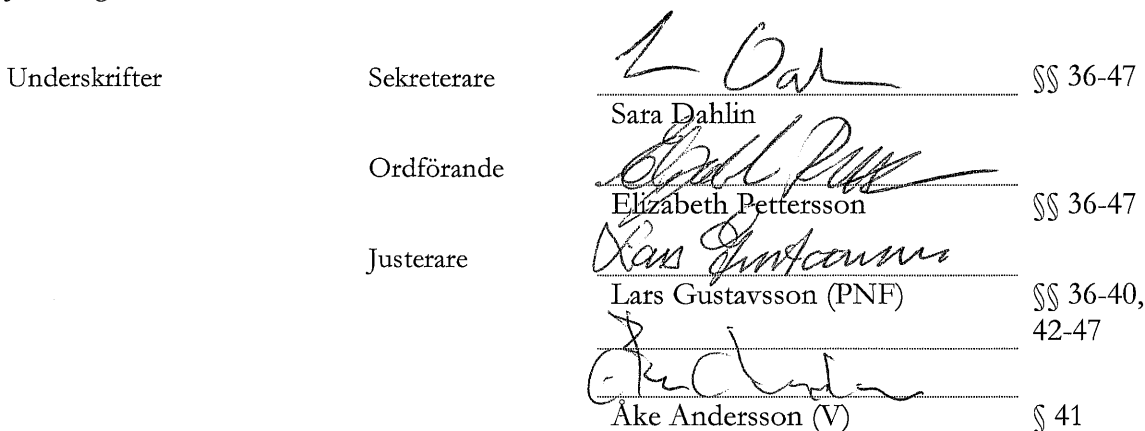 Underskrifter Sekreterare §§ 36-47
Sara Dahlin
Ordförande
Elizabeth Pettersson §§ 36-47
Justerare
Lars Gustavsson (PNF) §§ 36-40,
42-47
Åke Andersson (V) § 41